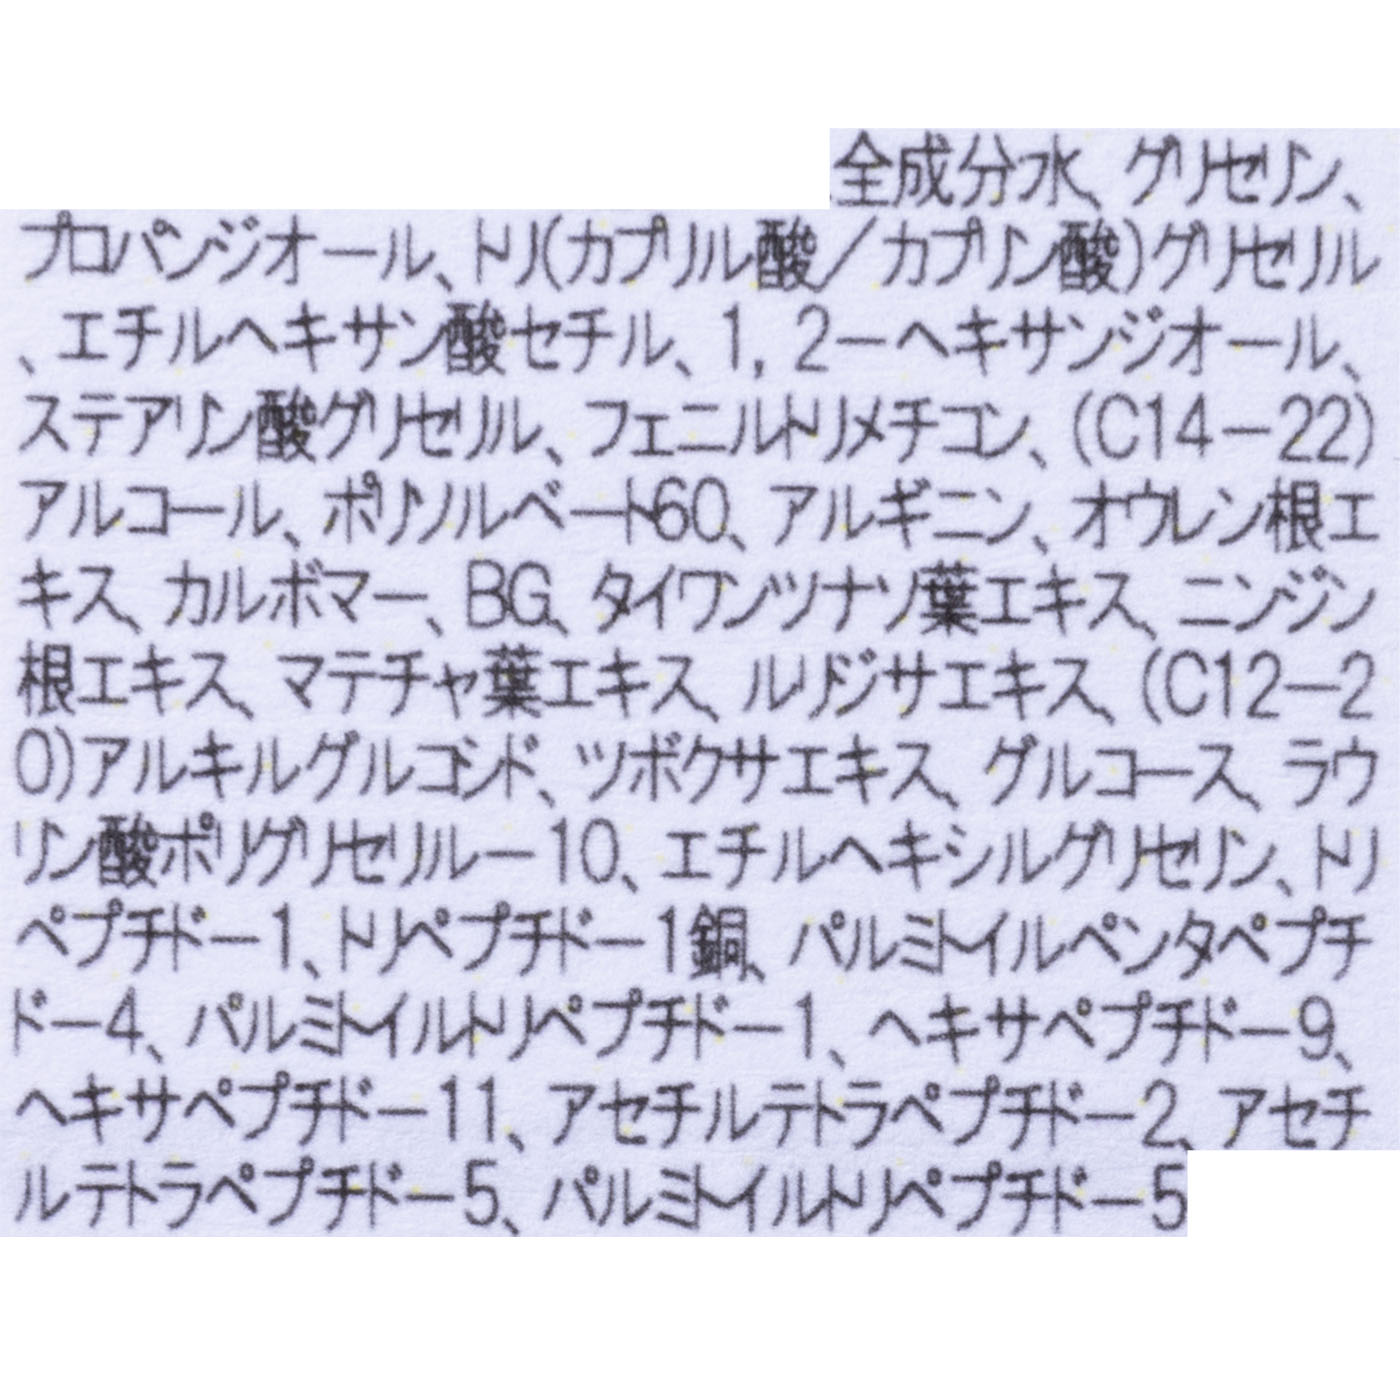 全成分水、グリセリン、
プロパンジオール、トリ(カプリル酸／カプリン酸)グリセリル
、エチルヘキサン酸セチル、1,2－ヘキサンジオール、
ステアリン酸グリセリル、フェニルトリメチコン、(C14－22)
アルコール、ポリソルベート60、アルギニン、オウレン根エ
キス、カルボマー、BG、タイワンツナソ葉エキス、ニンジン
根エキス、マテチャ葉エキス、ルリジサエキス、(C12－2
0)アルキルグルコシド、ツボクサエキス、グルコース、ラウ
リン酸ポリグリセリル－10、エチルヘキシルグリセリン、トリ
ペプチド－1、トリペプチド－1銅、パルミトイルペンタペプチ
ド－4、パルミトイルトリペプチド－1、ヘキサペプチド－9、
ヘキサペプチド－11、アセチルテトラペプチド－2、アセチ
ルテトラペプチド－5、パルミトイルトリペプチド－5